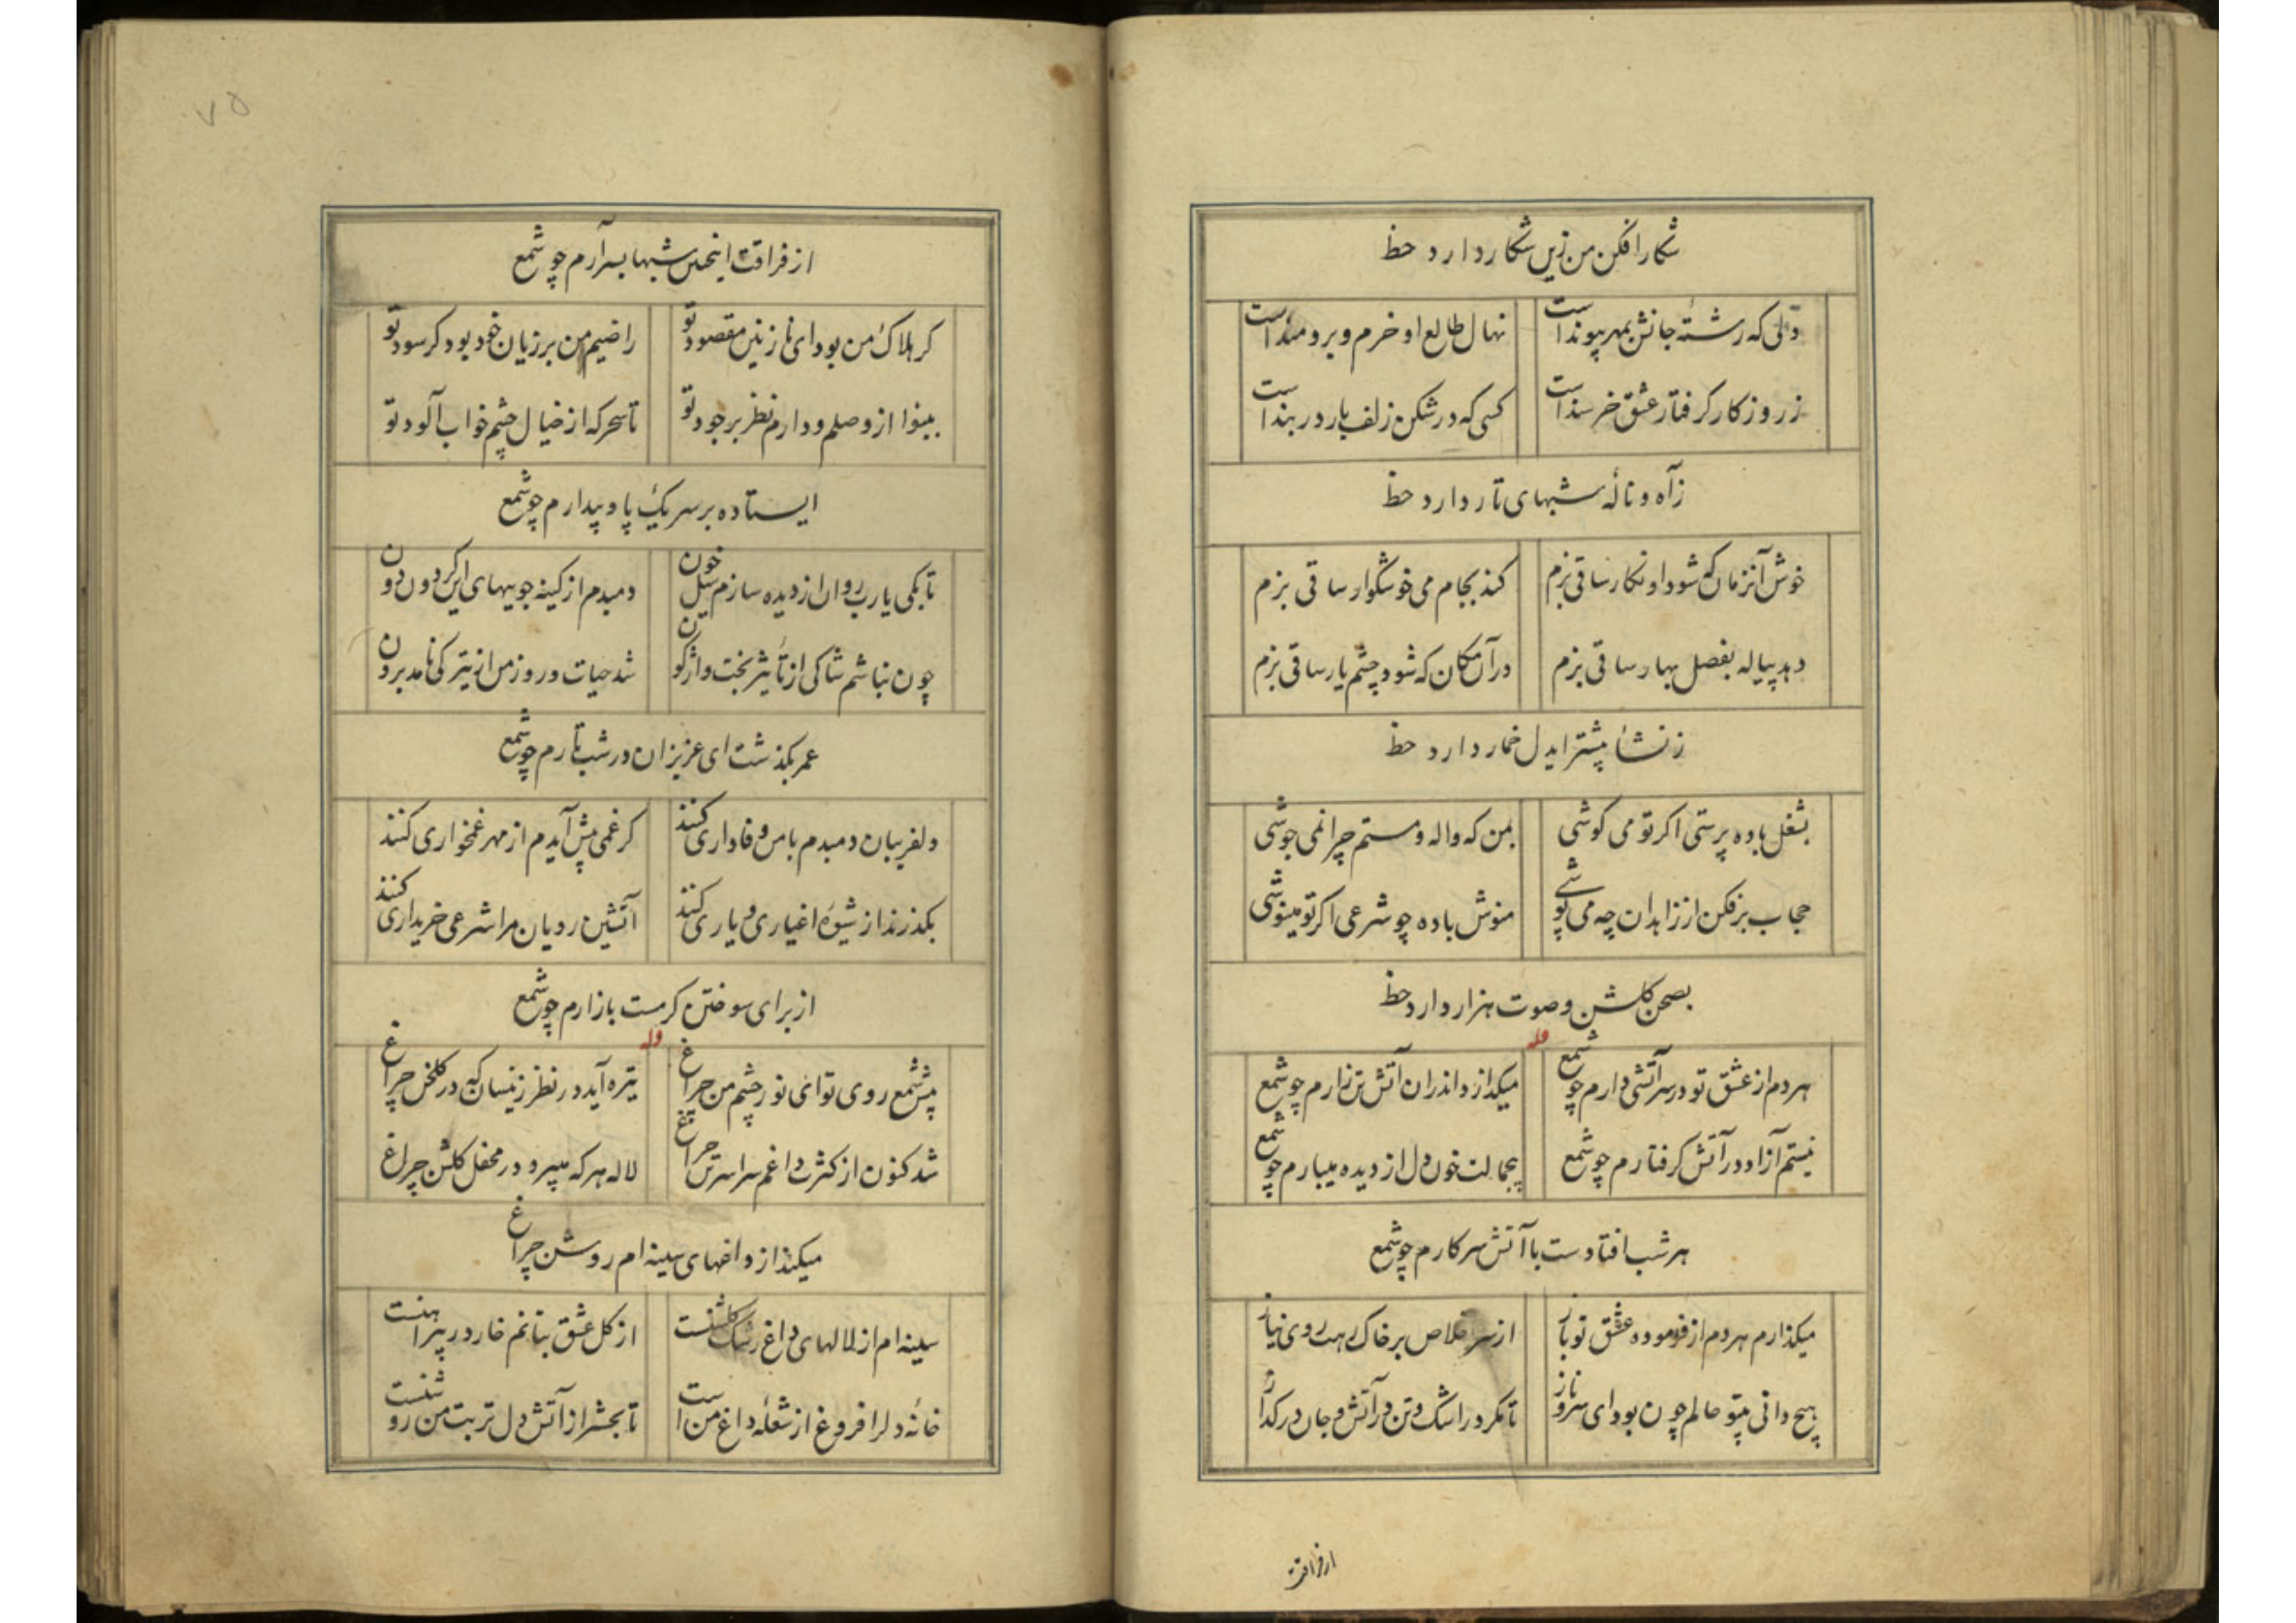 شکار افکن من زین شکار دارد حظ
دلی که رشتهٔ جانش بمهر پیوند است
نهال طالع او خرم و برومند است
ز روزکار کرفتار عشق خرسند است
کسی که در شکن زلف یار در بند است
ز آه و نالهٔ شبهای تار دارد حظ
خوش آنزمان که شود او نکار ساقی بزم
کند بجام می خوشکوار ساقی بزم
دهد پیاله بفصل بهار ساقی بزم
در آن مکان که شود چشم یار ساقی بزم
ز نشأ پیشتر ایدل خمار دارد حظ
بشغل باده پرستی اکر تو می کوشی
بمن که واله و مستم چرا نمی جوشی
حجاب برفکن از زاهدان چه می پوشی
منوش باده چو شرعی اکر تو مینوشی
بصحن کلشن و صوت هزار دارد حظ
وله
هر دم از عشق تو در سر آتشی دارم چو شمع
میکدازد اندران آتش تن زارم چو شمع
نیستم آزاد و در آتش کرفتارم چو شمع
بیجمالت خون دل از دیده میبارم چو شمع
هر شب افتادست با آتش سر کارم چو شمع
میکذارم هر دم از فرموده عشق تو باز
از سر اخلاص بر خاک رهت روی نیاز
هیچ دانی بیتو حالم چون بود ای سرو ناز
تا کمر در اشک و تن در آتش و جان در کداز
از فراقت
۷۵
از فراقت اینچنین شبها بسر آرم چو شمع
کر هلاک من بود ای نازنین مقصود تو
راضیم من بر زیان خود بود کر سود تو
بینوا از وصلم و دارم نظر بر جود تو
تا سحرکه از خیال چشم خواب آلود تو
ایستاده بر سر یک پا و بیدارم چو شمع
تا بکی یارب روان از دیده سازم سیل خون
دمبدم از کینه جوییهای این کردون دون
چون نباشم شاکی از تأثیر بخت واژکون
شد حیات و روز من از تیرکی نامد برون
عمر بکذشت ای عزیزان در شب تارم چو شمع
دلفریبان دمبدم با من وفاداری کنند
کر غمی پیش آیدم از مهر غمخواری کنند
بکذرند از شیوهٔ اغیاری و یاری کنند
آتشین رویان مرا شرعی خریداری کنند
از برای سوختن کرمست بازارم چو شمع
وله
پیش شمع روی تو ای نور چشم من چراغ
تیره آید در نظر زنیسان که در کلخن چراغ
شد کنون از کثرت داغم سراسر تن چراغ
لاله هر که میبرد در محفل کلشن چراغ
میکند از داغهای سینه ام روشن چراغ
سینه ام از لالهای داغ رشک کلشنست
از کل عشق بتانم خار در پیراهنست
خانهٔ دلرا فروغ از شعلهٔ داغ من است
تا بحشر از آتش دل تربت من روشنست